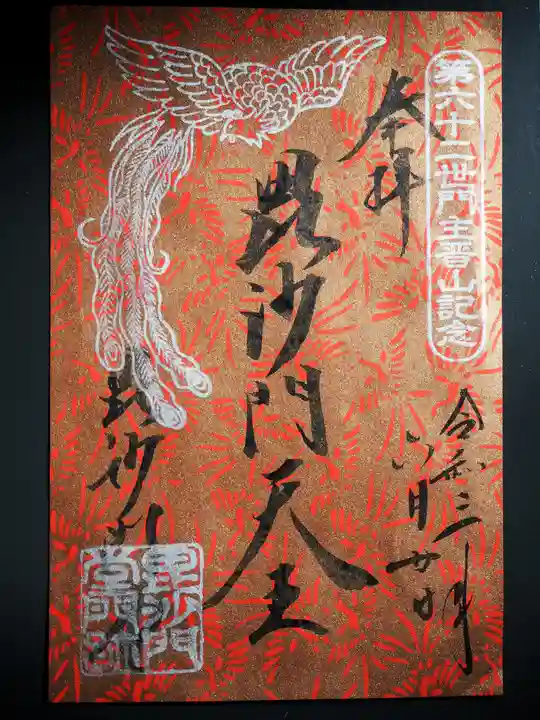 第六十二世門主晋山記念
奉拝
令和三年
六月廿日
毘沙門天王
毘沙門堂
毘沙門
堂門跡